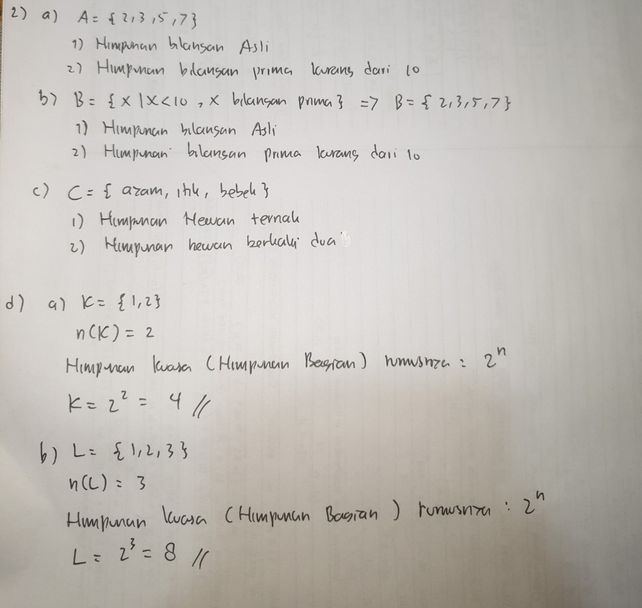 2) a) A = {2,3,5,7}
1) Himpunan bilangan Asli
2) Himpunan bilangan prima kurang dari 10
b) B = {x | x < 10, x bilangan prima} => B = {2,3,5,7}
1) Himpunan bilangan Asli
2) Himpunan bilangan prima kurang dari 10
c) C = {ayam, itik, bebek}
1) Himpunan Hewan ternak
2) Himpunan hewan berkaki dua
d) a) K = {1,2}
n(K) = 2
Himpunan kuasa (Himpunan Bagian) rumusnya : 2ⁿ
K = 2² = 4 //
b) L = {1,2,3}
n(L) = 3
Himpunan kuasa (Himpunan Bagian) rumusnya : 2ⁿ
L = 2³ = 8 //